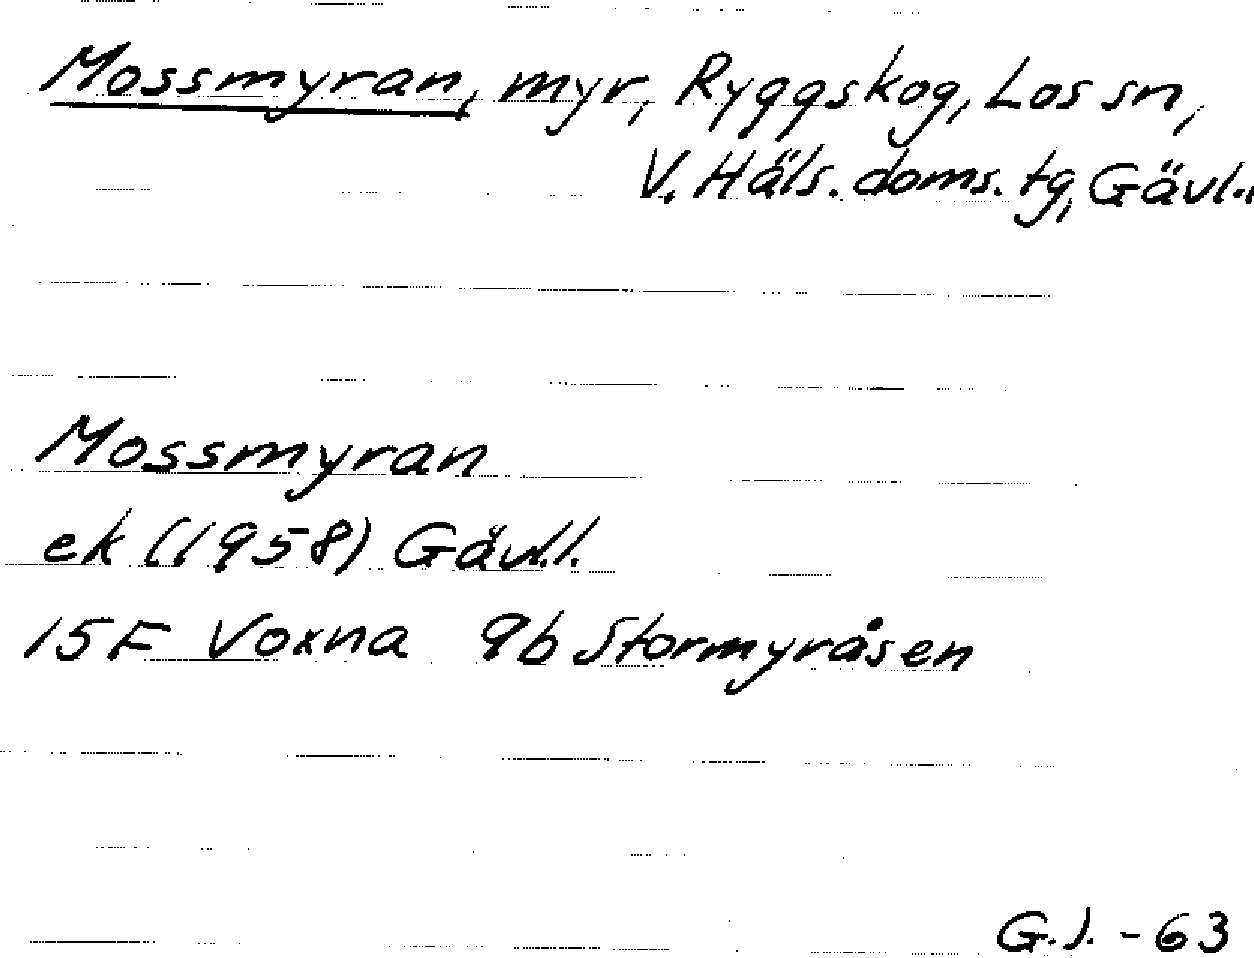 Mossmyran, myr, Ryggskog, Los sn,
V. Häls. doms. tg, Gävl.l.
Mossmyran
ek (1958) Gävl.l.
15F Voxna 9b Stormyråsen
G.J. - 63